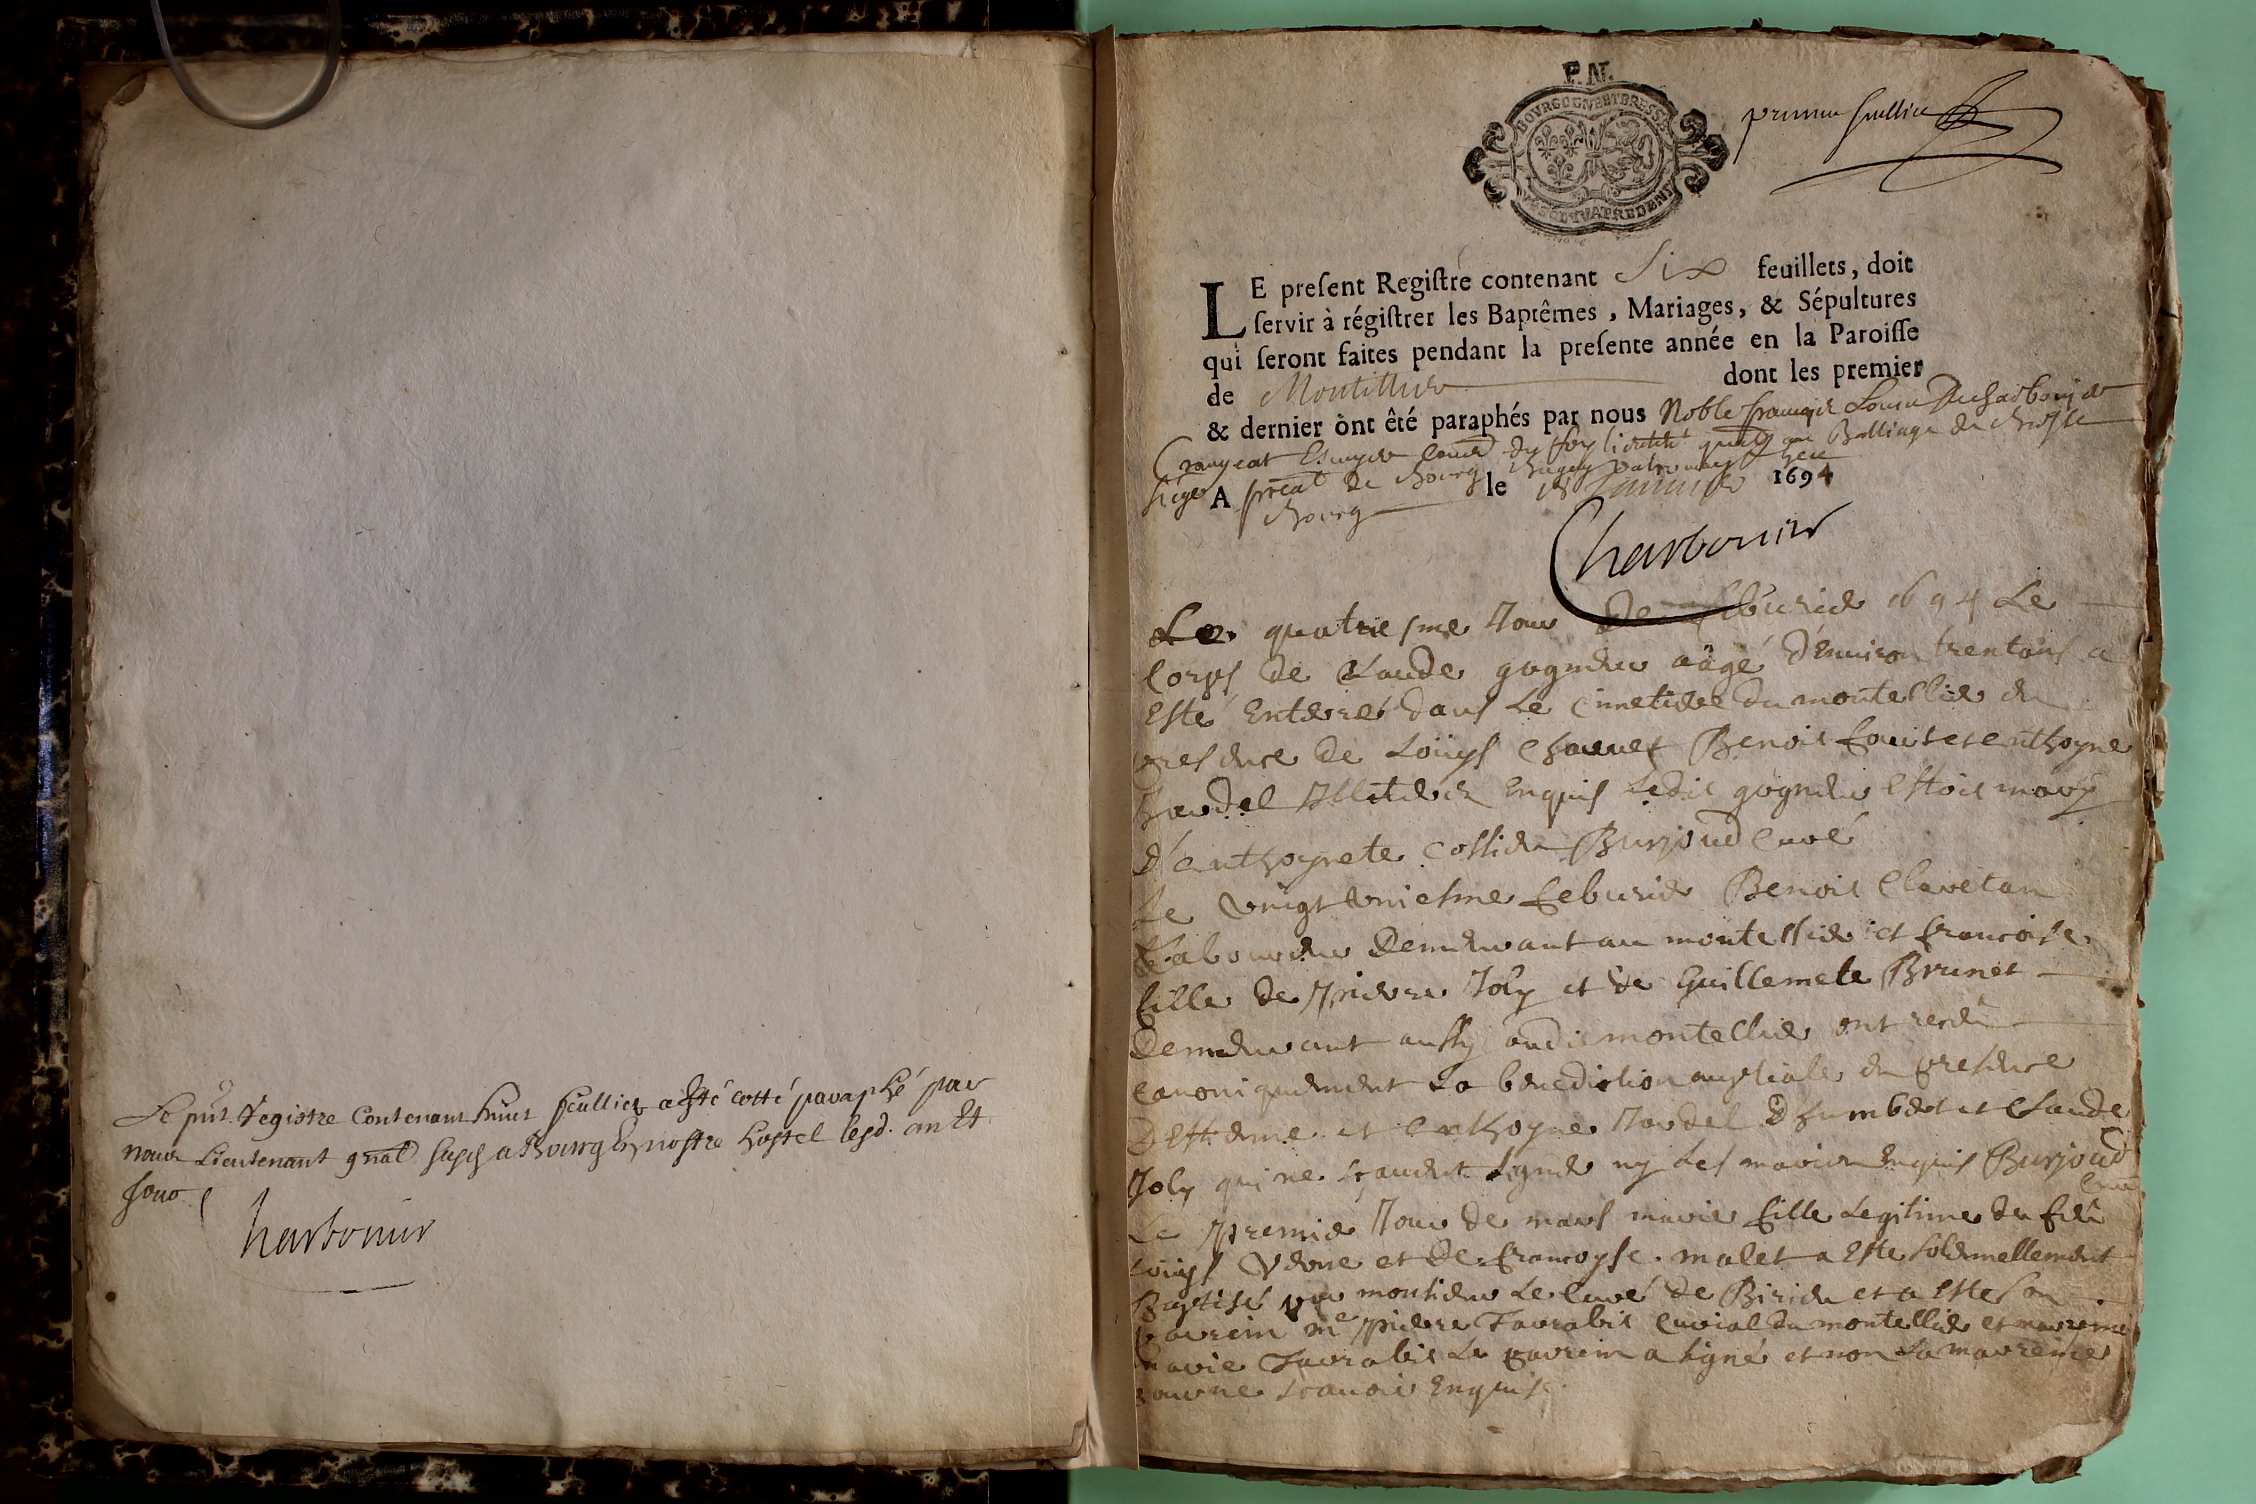 Le pnt. Registre Contenant huict feulliets a esté cotté paraphé par
nous Lieutenant gnal susd a Bourg En nostre hostel lesd. an Et
Jour
Charbonier
P. N.
BOURGOGNE ET BRESSE
QUATRE DEN
premier feulliet
LE present Registre contenant Six feuillets, doit
servir à régistrer les Baptêmes, Mariages, & Sépultures
qui seront faites pendant la presente année en la Paroisse
de Montillier dont les premier
& dernier ont êté paraphés par nous Noble françois Louis Decharbonier
Crangeat Escuyer Coner du Roy lieutent gnal au Balliage de Bresse
siege A preal de Bourg le 15 Janvier 1694
Bourg
Charbonier
Le quatriesme Jour De feburier 1694 Le
Corps de Claude gogneu aàgé d'Enuiron trentans a
Esté Enterré dans Le Cimetiere du montellier en
presence de Loüys Chauuet Benoit faure et enthoyne
Jardel Illiterez Enquis Ledit gogneu Estoit mary
d'enthoynete Cottier Burjoud Curé
Le vingt vniesme feburier Benoit Clauetan
Laboureur Demeurant au montellier et francoise
fille de Pierre Joly et de Guillemete Brunet
Demeurant aussy audit montellier ont receu
Canoniquement La benediction nuptiale en presence
D'Estienne et enthoyne Jardel D humbert et Claude
Joly qui ne scauent signer ny Les mariez Enquis Burjoud
Curé
Le Premier Jour de mars marie fille Legitime de feu
Loüys Verne et De francoyse malet a Esté Solemnellement
Baptisé par monsieur Le Curé de Birieu et a Esté Son
parrein me Pierre Favrabit Curial du montellier et marreine
marie Favrabit Le parrein a signé et non La marreine
pour ne scauoir Enquise